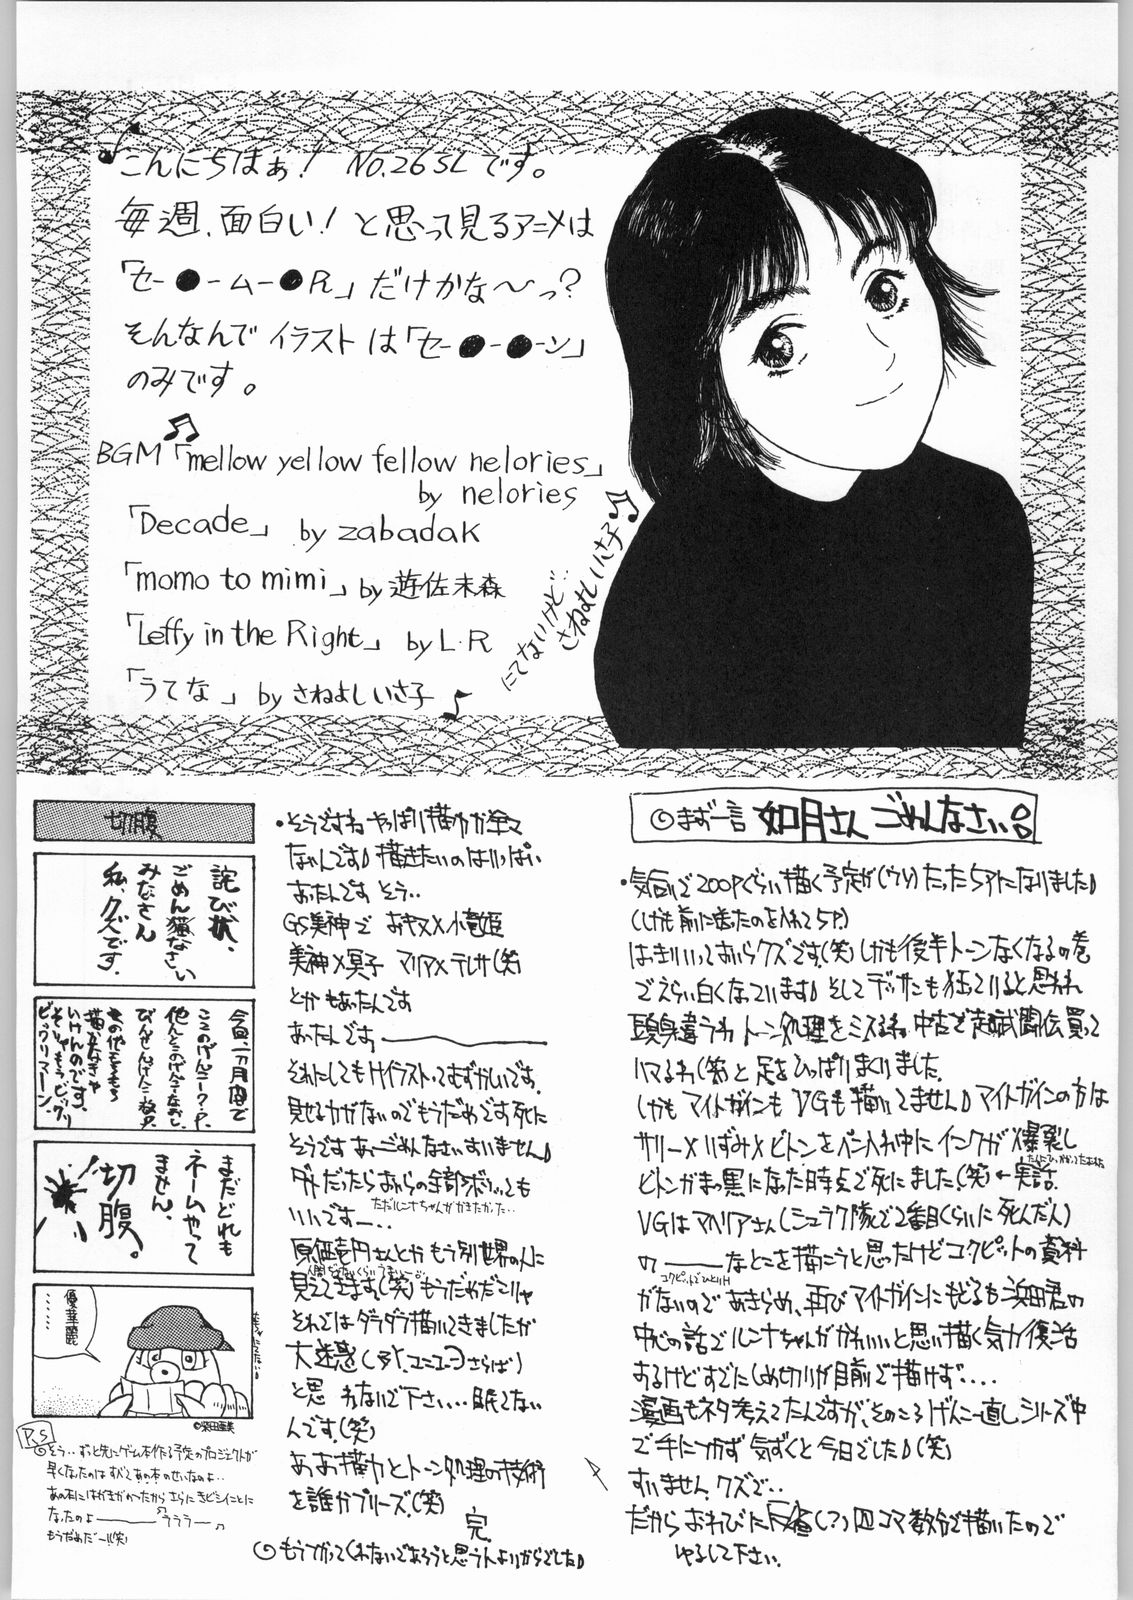 こんにちはぁ! NO.26SLです。
毎週、面白い!と思って見るアニメは
「セー●ームー●R」だけかな〜っ?
そんなんでイラストは「セー●ー●ーン」
のみです。
BGM「mellow yellow fellow nelories」
by nelories
「Decade」 by zabadak
「momo to mimi」by 遊佐未森
「Leffy in the Right」 by L・R
「うてな」by さねよしいさ子
にてないけど…
さねよしいさ子
◎まず一言 如月さんごめんなさい
・気合いで200Pぐらい描く予定が(ウソ)たった5Pになりました
(しかも前に送ったのを入れて5P)
はっきりいっておいらクズです。(笑)しかも後半トーンなくなるの巻
でえらい白くなっています♪そしてデッサンも狂っていると思われ
頭身違うわトーン処理をミスるわ、中古で超武闘伝買って
ハマるわ(笑)と足をひっぱりまくりました。
しかもマイトガインもVGも描いてません♪マイトガインの方は
サリー×いずみ×ビトンをペン入れ中にインクが爆裂し
ビトンがまっ黒になった時点で死にました。(笑)←実話
VGはマヘリアさん(シュラク隊で2番目くらいに死んだ人)
の――なとこを描こうと思ったけどコクピットの資料
コクピットでひとりH
がないのであきらめ、再びマイトガインにもどるも浜田君の
中心の話でルンナちゃんがかわいいと思い描く気力復活
するけどすでにしめ切りが目前で描けず‥‥
漫画もネタ考えてたんですが、そのころげんこー直しシリーズ中
で手につかず気ずくと今日でした♪(笑)
すいません。クズで‥
だからおわびに反省(?)四コマ数分で描いたので
ゆるして下さい。
・そうですねやっぱり描力が全て
なんです♪描きたいのはいっぱい
あったんです そう‥
GS美神で おキヌ×小竜姫
美神×冥子 マリア×テレサ(笑)
とかもあったんです
あったんです――
それにしてもHイラストってむずかしいです。
見せる力がないのでもうだめです死に
そうです あーごめんなさいすいません♪
ダメだったらおいらの全部ボツっても
ただルンナちゃんがかきたかった‥
いいですー‥
原価壱円さんとかもう別世界の人に
見えてきます。(笑)もうだめだこりゃ
それではダラダラ描いてきましたが
大迷惑(
と思 わないで下さい‥‥眠くてない
んです。(笑)
ああ描力とトーン処理の技術
を誰かプリーズ。(笑)
完
◎もうつかってくれないであろうと思う人よりからでした♪
切腹
詫び状、
ごめん猫なさい
みなさん
私、クズです。
今回、一ヵ月間で
ここのげんこーク・P、
他んとこのげんこーなおし、
びんせんげんこー
その他もろもろ
描かなきゃ
いけんのです。
そりゃもう、ビックリ
ビックリマーン。
まだどれも
ネームやって
ません。
切腹。
優華麗
‥‥‥
©柴田亜美
P.S
◎そう‥ずっと先にゲーム本作る予定のプロジェクトが
早くなったのはすべてあの本のせいなのよ‥
あの本にはがきがのったからさらにきびシイことに
なったのよ――ウララー♪
もうだめだー!!(笑)